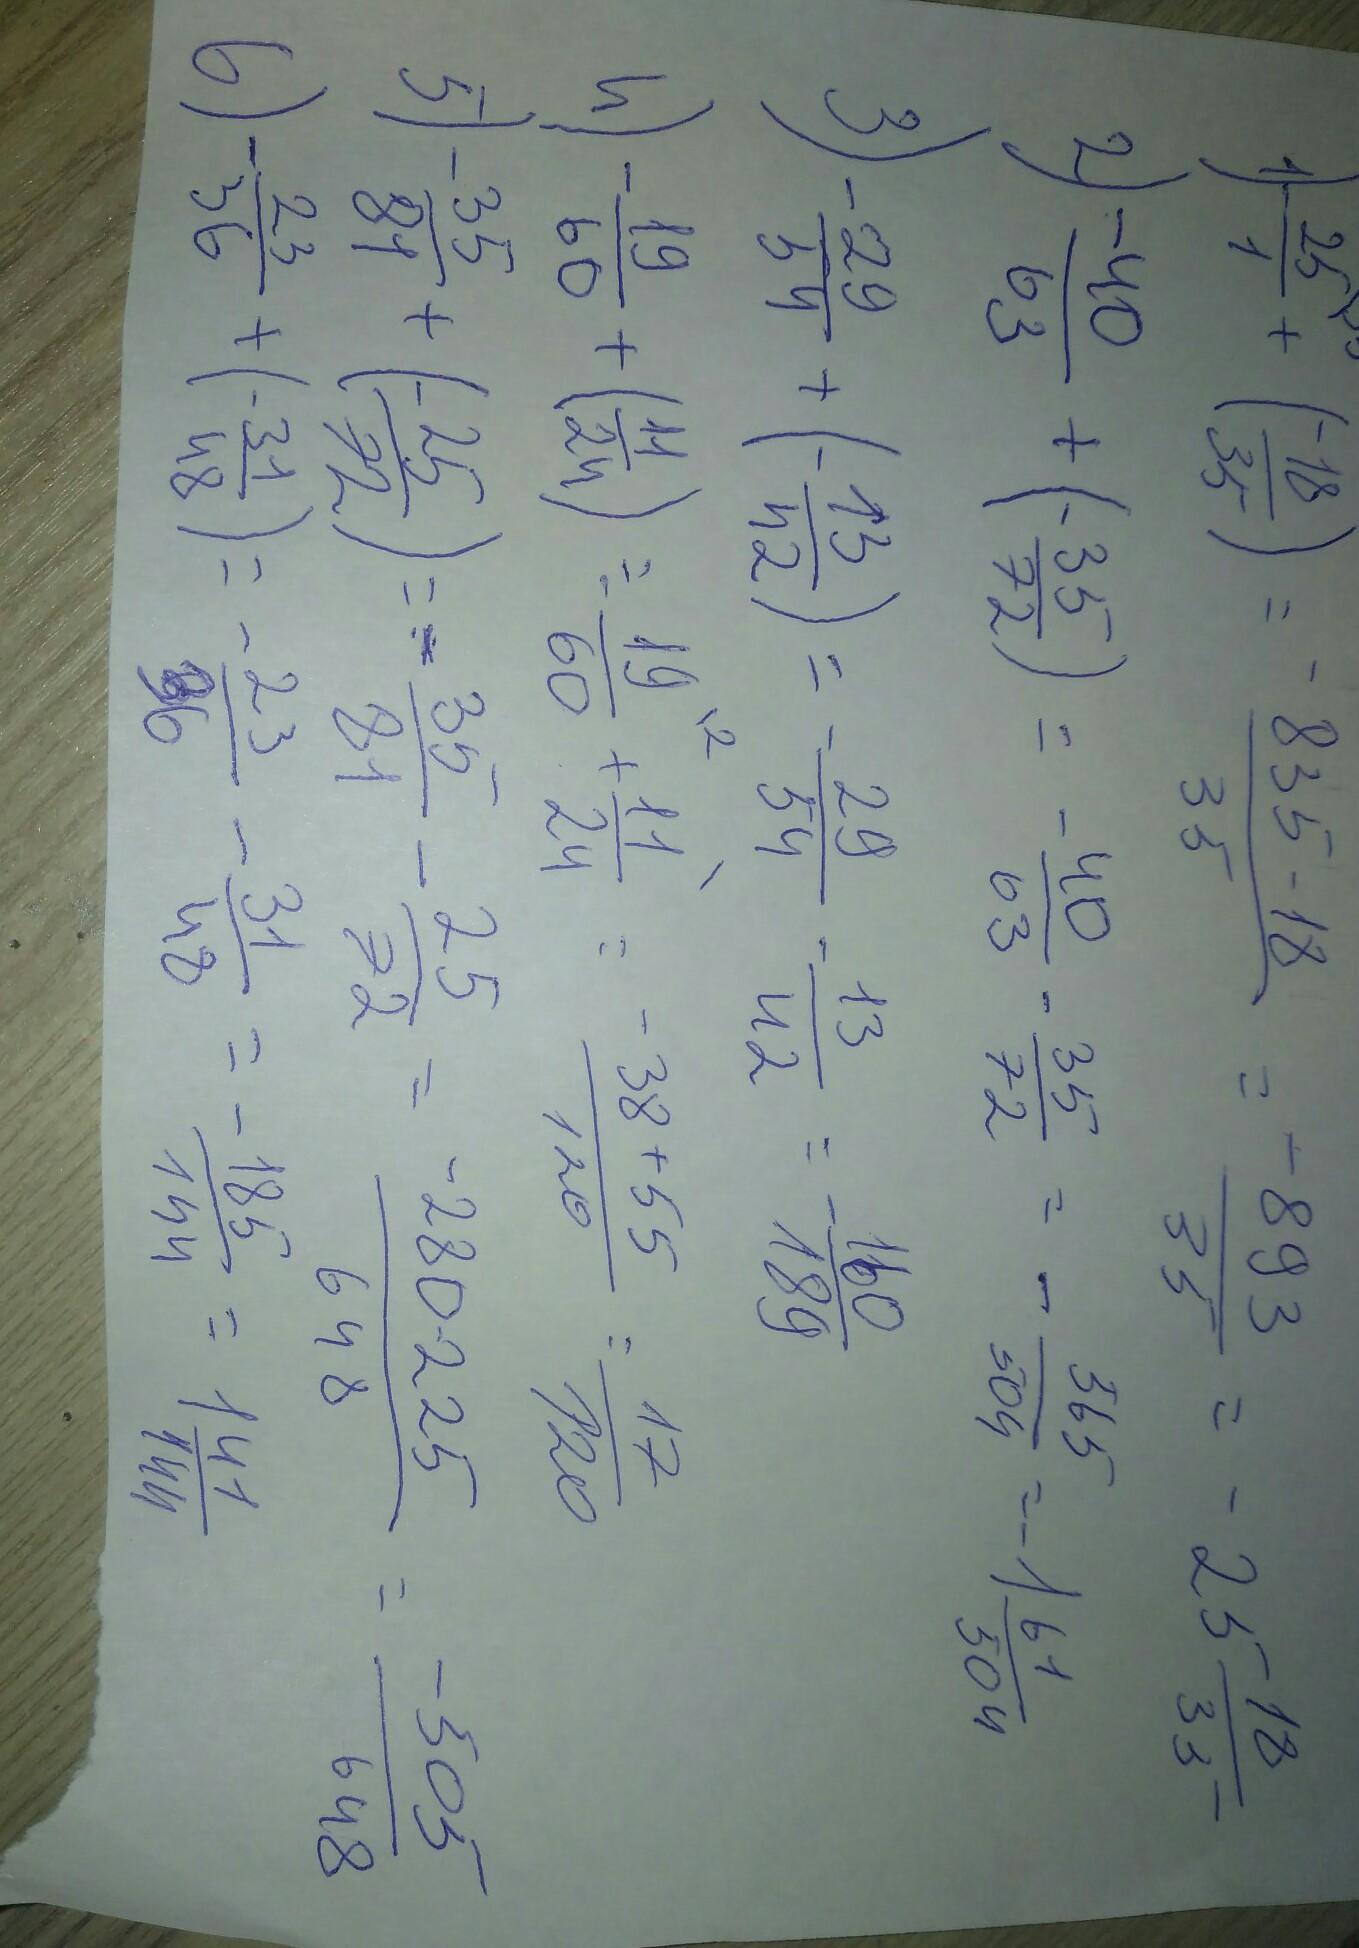 1) -25/1 + (-18/35) = -835-18/35 = -893/35 = -25 18/35
2) -40/63 + (-35/72) = -40/63 - 35/72 = -565/504 = -1 61/504
3) -29/54 + (-13/42) = -29/54 - 13/42 = -160/189
4) -19/60 + (11/24) = -19/60 + 11/24 = -38+55/120 = 17/120
5) -35/81 + (-25/72) = -35/81 - 25/72 = -280-225/648 = -505/648
6) -23/36 + (-31/48) = -23/36 - 31/48 = -185/144 = 1 41/144